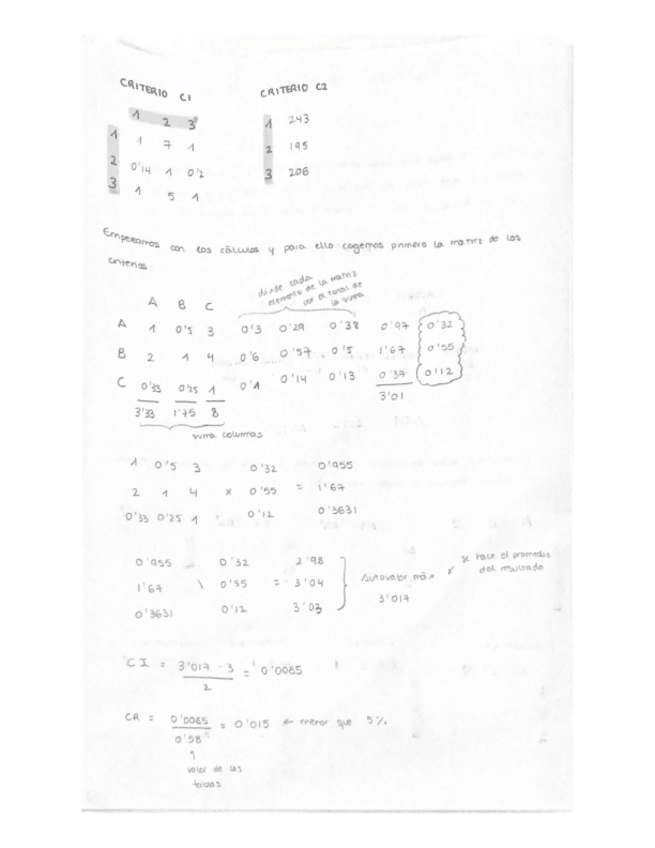 CRITERIO C1
CRITERIO C2
1 2 3
1 1 7 1
2 0'14 1 0'2
3 1 5 1
1 243
2 195
3 206
Empezamos con los cálculos y para ello cogemos primero la matriz de los
criterios.
divide cada
elemento de la matriz
por el total de
la suma
A B C
A 1 0'5 3 0'3 0'29 0'38 0'97 0'32
B 2 1 4 0'6 0'57 0'5 1'67 0'55
C 0'33 0'25 1 0'1 0'14 0'13 0'37 0'12
3'33 1'75 8 3'01
suma columnas
1 0'5 3 0'32 0'955
2 1 4 x 0'55 = 1'67
0'33 0'25 1 0'12 0'3631
0'955 0'32 2'98
1'67 \ 0'55 = 3'04
0'3631 0'12 3'03
Autovalor máx
3'017
se hace el promedio
del resultado
CI = 3'017 - 3 / 2 = 0'0085
CR = 0'0085 / 0'58 = 0'015 ← menor que 5%
valor de las
tablas